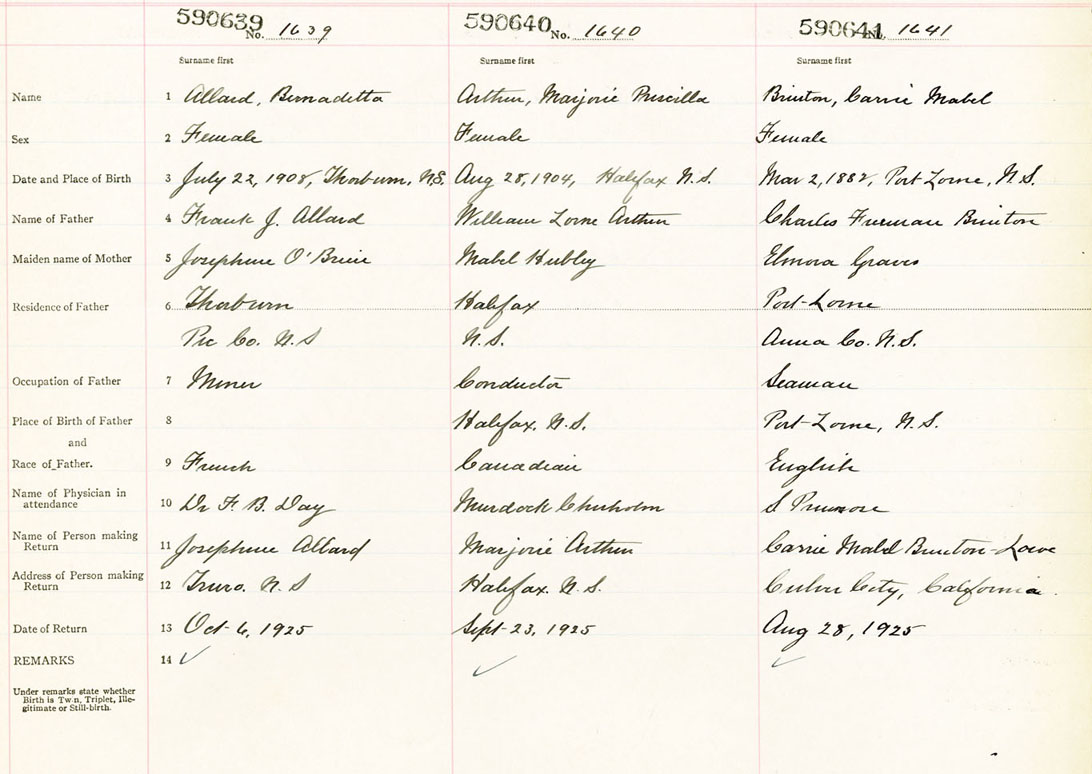 590639 No. 1639 590640 No. 1640 590641 No. 1641
Surname first Surname first Surname first
Name 1 Allard, Bernadetta Arthur, Marjorie Priscilla Brinton, Carrie Mabel
Sex 2 Female Female Female
Date and Place of Birth 3 July 22, 1908, Thorburn, N.S. Aug 28, 1904, Halifax N.S. Mar 2, 1882, Port Lorne, N.S.
Name of Father 4 Frank J. Allard William Lorne Arthur Charles Freeman Brinton
Maiden name of Mother 5 Josephine O'Brien Mabel Hubley Elmora Graves
Residence of Father 6 Thorburn Halifax Port-Lorne
Pic Co. N.S N.S. Anna Co. N.S.
Occupation of Father 7 Miner Conductor Seaman
Place of Birth of Father 8 Halifax. N.S. Port-Lorne, N.S.
and
Race of Father. 9 French Canadian English
Name of Physician in
attendance 10 Dr F. B. Day Murdock Chisholm S Primrose
Name of Person making
Return 11 Josephine Allard Marjorie Arthur Carrie Mabel Brinton-Lowe
Address of Person making
Return 12 Truro. N.S Halifax. N.S. Culver City, California.
Date of Return 13 Oct-6, 1925 Sept-23, 1925 Aug 28, 1925
REMARKS 14 ✓ ✓ ✓
Under remarks state whether
Birth is Twin, Triplet, Ille-
gitimate or Still-birth.